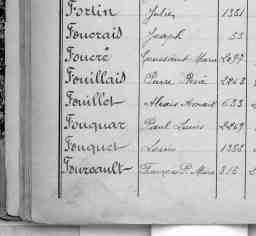 Fortin Julien 1351
Foucrais Joseph 53
Foucré Toussaint Marie 2697
Fouillais Pierre René 2868
Fouillet Alexis Armait 633
Fouquar Paul Louis 2869
Fouquet Louis 1352
Fourcault François P. Marie 816